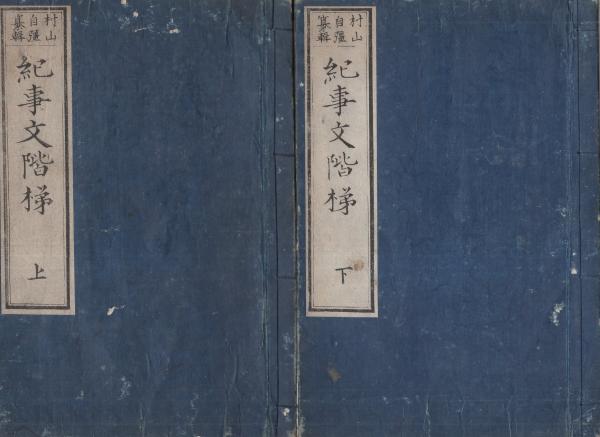 村山
自彊
纂輯
紀事文階梯
上
村山
自彊
纂輯
紀事文階梯
下